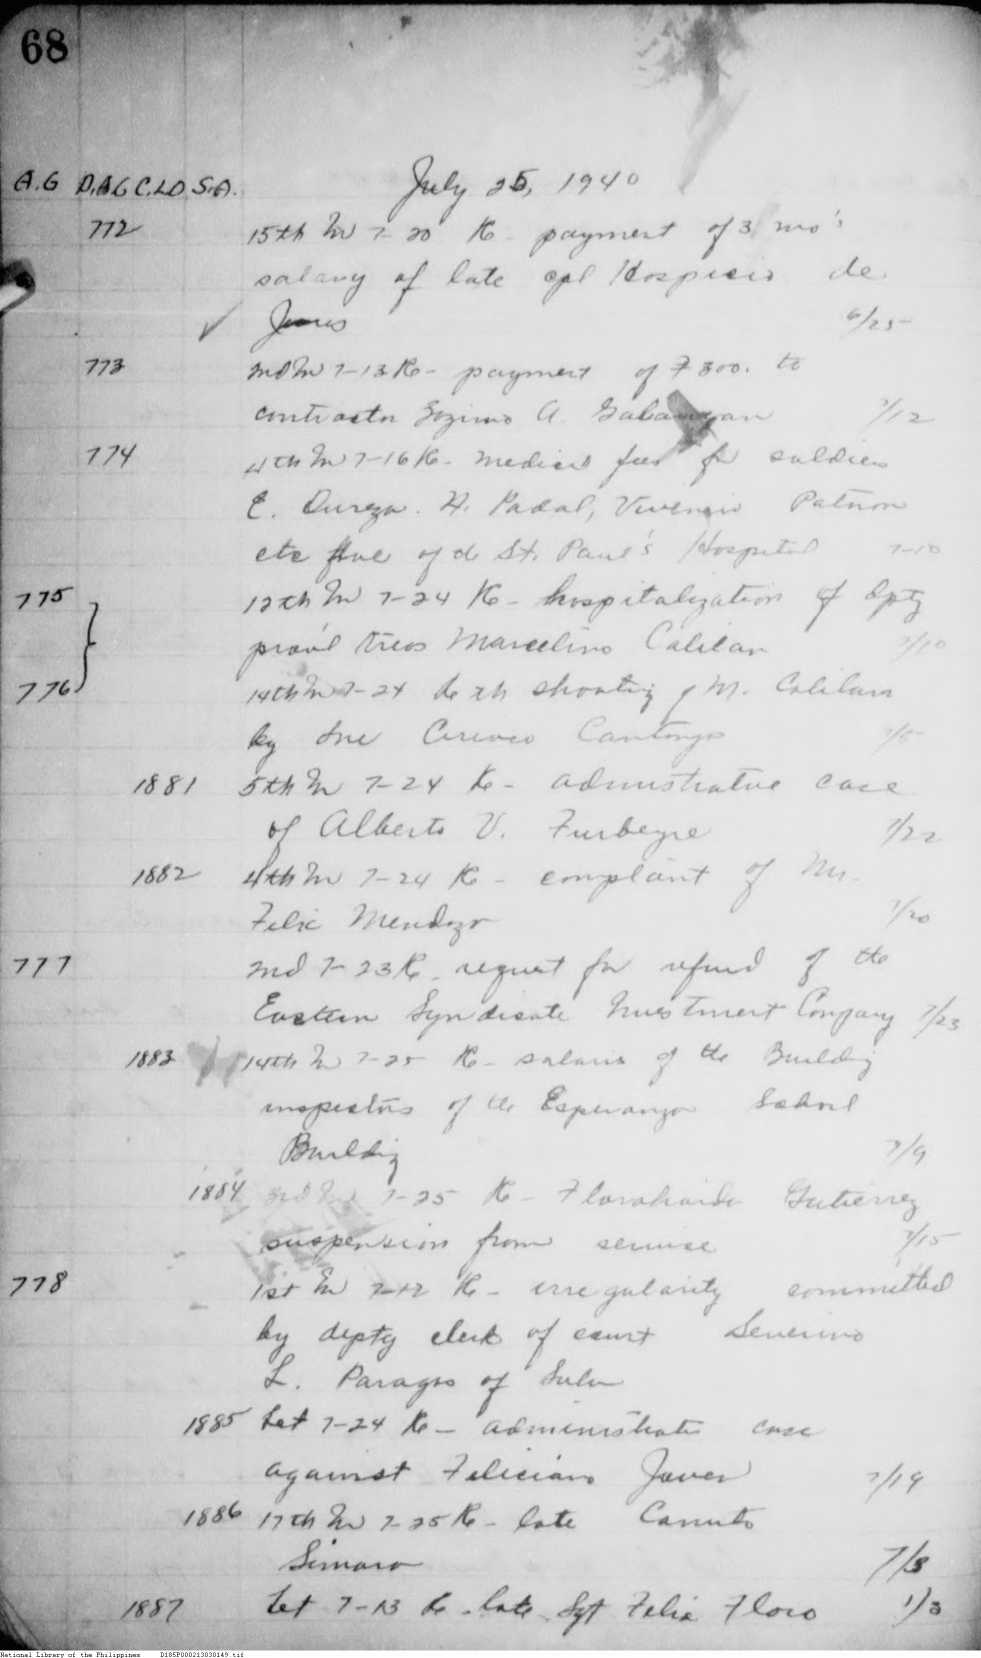 68
A.G D.A.G C.L.D. S.A. July 25, 1940
772 15th In 7-20 Re- payment of 3 mo's
salary of late cpl Hospicio de
Jesus 6/25
773 2nd In 7-13 Re- payment of ₱300. to
contractor Zozimo A. 7/12
774 4th In 7-16 Re- medical fees for soldiers
E. Dureza. H. Padal, Patron
etc five of de St. Paul's Hospital 7-10
775 12th In 7-24 Re- hospitalization of dpty
prov'l treas Marcelino Calilan 7/10
776 14th In 7-24 Re sh shooting of M. Calilan
by one Cantonjo 7/5
1881 5th In 7-24 Re- admnistrative case
of Alberto V. Furbeyre 7/22
1882 4th In 7-24 Re- complaint of Mr.
Felix Mendozo 7/20
777 2nd 7-23 Re- request for refund of the
Eastern Syndicate Investment Company 7/23
1883 14th In 7-25 Re- salaries of the Building
inspectors of the Esperanza School
Building 7/9
1884 3rd In 7-25 Re- Gutierrez
suspension from service 7/15
778 1st In 7-12 Re- irregularity committed
by depty clerk of court Severino
L. Paragas of Sulu
1885 Let 7-24 Re- administrative case
against Feliciano Javer 7/19
1886 17th In 7-25 Re- late Canuto
Simaro 7/8
1887 Let 7-13 Re- late Sgt Felix Floro 1/3
National Library of the Philippines D185P000213030149.tif